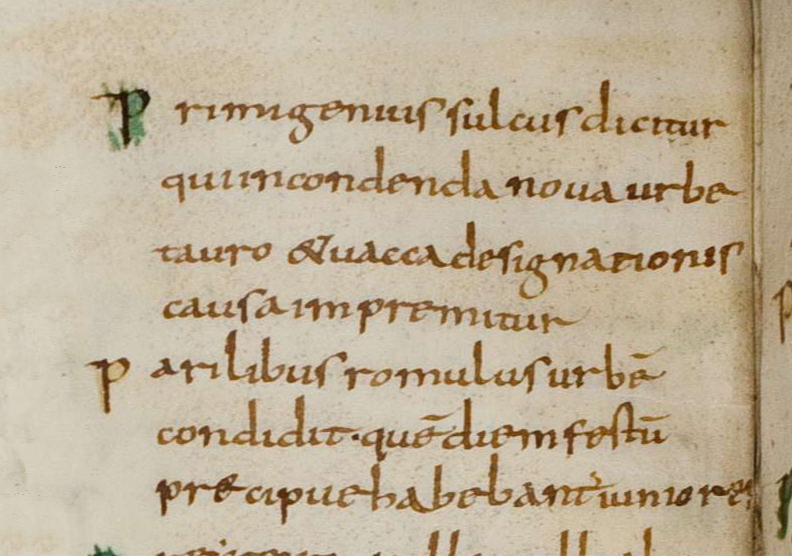 Primigenius sulcus dicitur
qui in condenda noua urbe
tauro & uacca designationis
causa impremitur
Parilibus romulus urbē
condidit · quē diem festū
precipue habebant iuniores